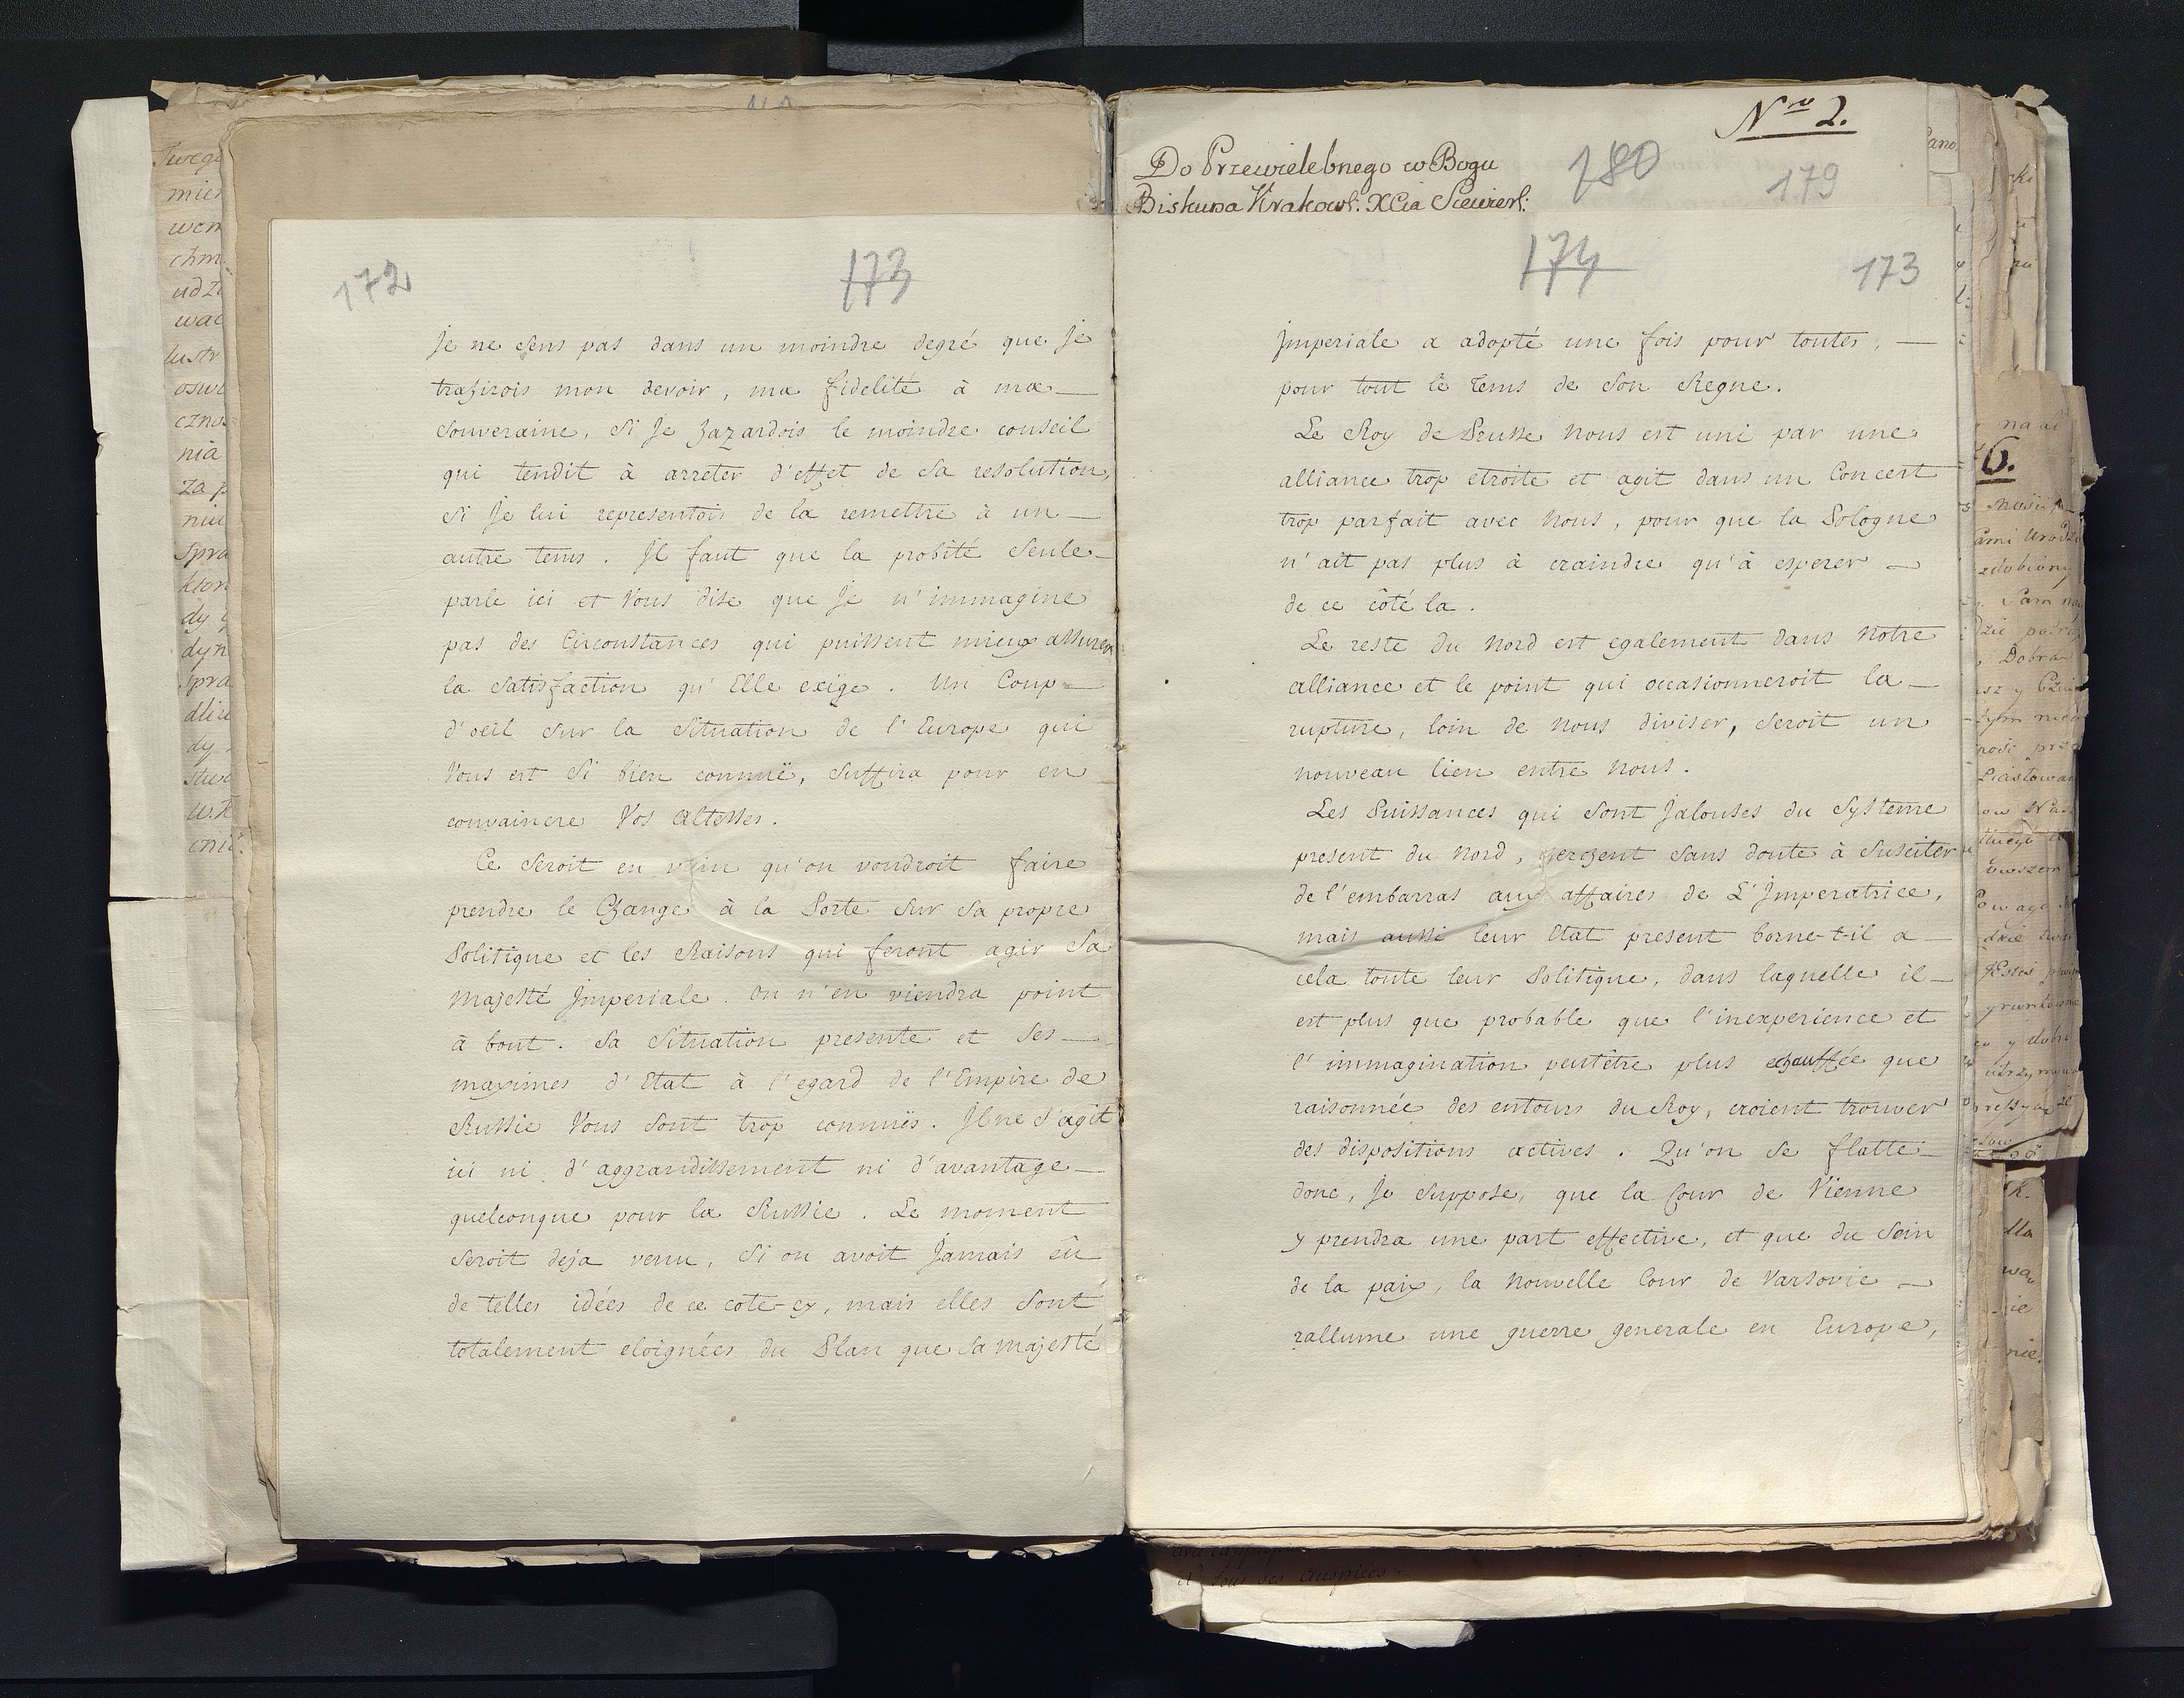 172
173
je ne sens pas dans un moindre degré que je
trahirois mon devoir, ma fidelité à ma
Souveraine, si je hazardois le moindre conseil
qui tendit à arreter d'effet de sa resolution,
si je lui representois de la remettre à un
autre tems. Il faut que la probité seule
parle ici et Vous dise que je n'immagine
pas des Circonstances qui puissent mieux assurer
la satisfaction qu'Elle exige. Un Coup
d'oeil sur la Situation de l'Europe qui
Vous est si bien connuë, suffira pour en
convaincre Vos Altesses.
Ce seroit en vain qu'on voudroit faire
prendre le Change à la Porte sur sa propre
Politique et les Raisons qui feront agir Sa
Majesté Imperiale. On n'en viendra point
à bout. Sa Situation presente et Ses
maximes d'Etat à l'egard de l'Empire de
Russie Vous sont trop connuës. Il ne s'agit
ici ni d'aggrandissement ni d'avantage
quelconque pour la Russie. Le moment
seroit deja venu, si on avoit Jamais eû
de telles idées de ce cote-cy, mais elles sont
totalement eloignées du Plan que Sa Majesté
Nro 2.
Do Przewielebnego w Bogu
Biskupa Krakows: XCia Siewiers:
180
179
174
173
Imperiale a adopté une fois pour toutes,
pour tout le tems de Son Regne.
Le Roy de Prusse Nous est uni par une
alliance trop etroite et agit dans un Concert
trop parfait avec Nous, pour que la Pologne
n'ait pas plus à craindre qu'à esperer
de ce côté la.
Le reste du Nord est egalement dans Notre
alliance et le point qui occasionneroit la
rupture, loin de Nous diviser, seroit un
nouveau lien entre Nous.
Les Puissances qui sont Jalouses du Systeme
present du Nord, cherchent sans doute à susciter
de l'embarras aux affaires de L'Imperatrice,
mais aussi leur Etat present borne-t-il a
cela toute leur Politique, dans laquelle il
est plus que probable que l'inexperience et
l'immagination peutêtre plus echauffée que
raisonnée des entours du Roy, croient trouver
des dispositions actives. Qu'on se flatte
donc, Je suppose, que la Cour de Vienne
y prendra une part effective, et que du Sein
de la paix, la Nouvelle Cour de Varsovie
rallume une guerre generale en Europe,
6.